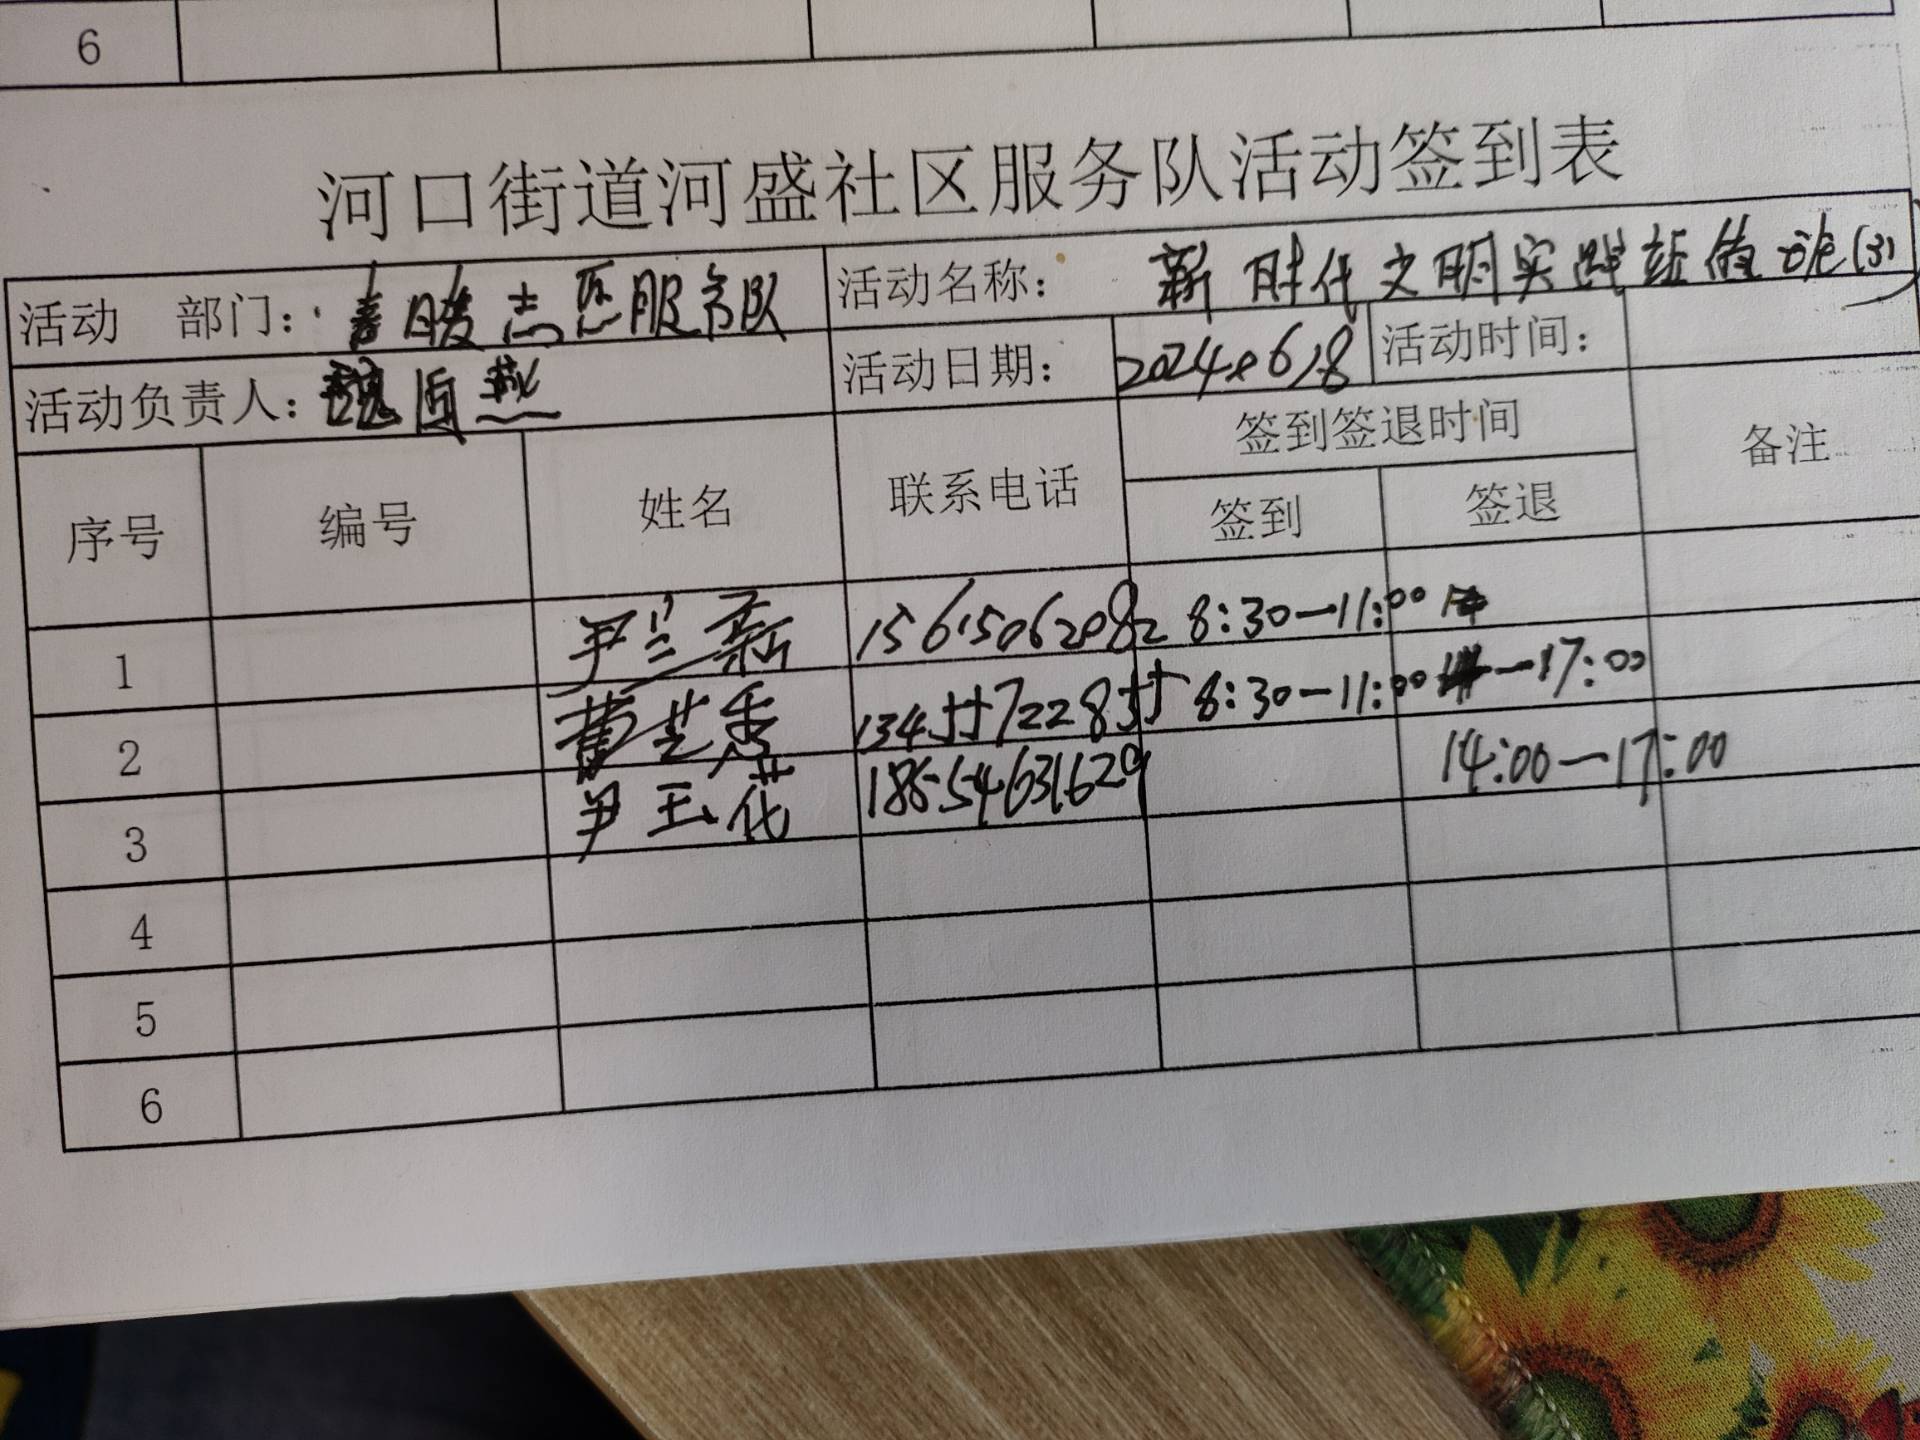 6
河口街道河盛社区服务队活动签到表
活动 部门： 暖志愿服务队 活动名称： 新时代文明实践站值班(3)
活动负责人： 魏 燕 活动日期： 2024.6.18 活动时间：
序号 编号 姓名 联系电话 签到签退时间 备注
签到 签退
1 尹兰新 15615062082 8:30—11:00
2 董芝秀 8:30—11:00 —17:00
3 尹玉花 18654631629 14:00—17:00
4
5
6